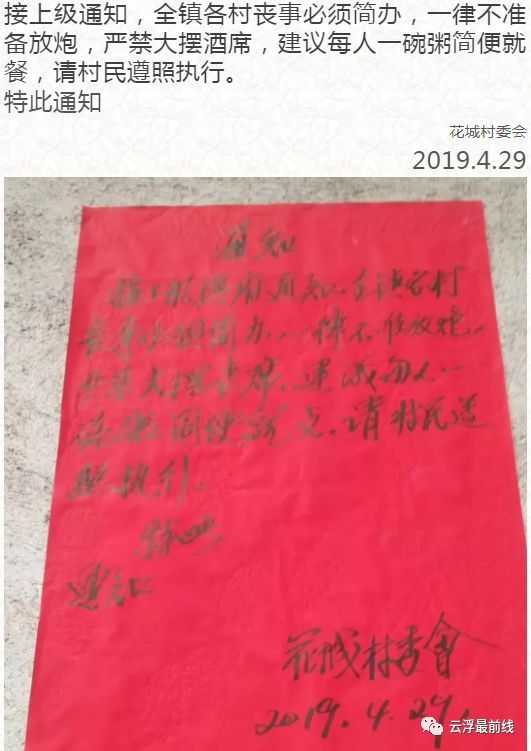 接上级通知，全镇各村丧事必须简办，一律不准
备放炮，严禁大摆酒席，建议每人一碗粥简便就
餐，请村民遵照执行。
特此通知
花城村委会
2019.4.29
通知
接上级镇府通知，全镇各村
丧事必须简办，一律不准放炮，
严禁大摆酒席，建议每人一
碗粥简便就歺，请村民遵
照执行。
特此
通知
花城村委會
2019.4.29.
云浮最前线